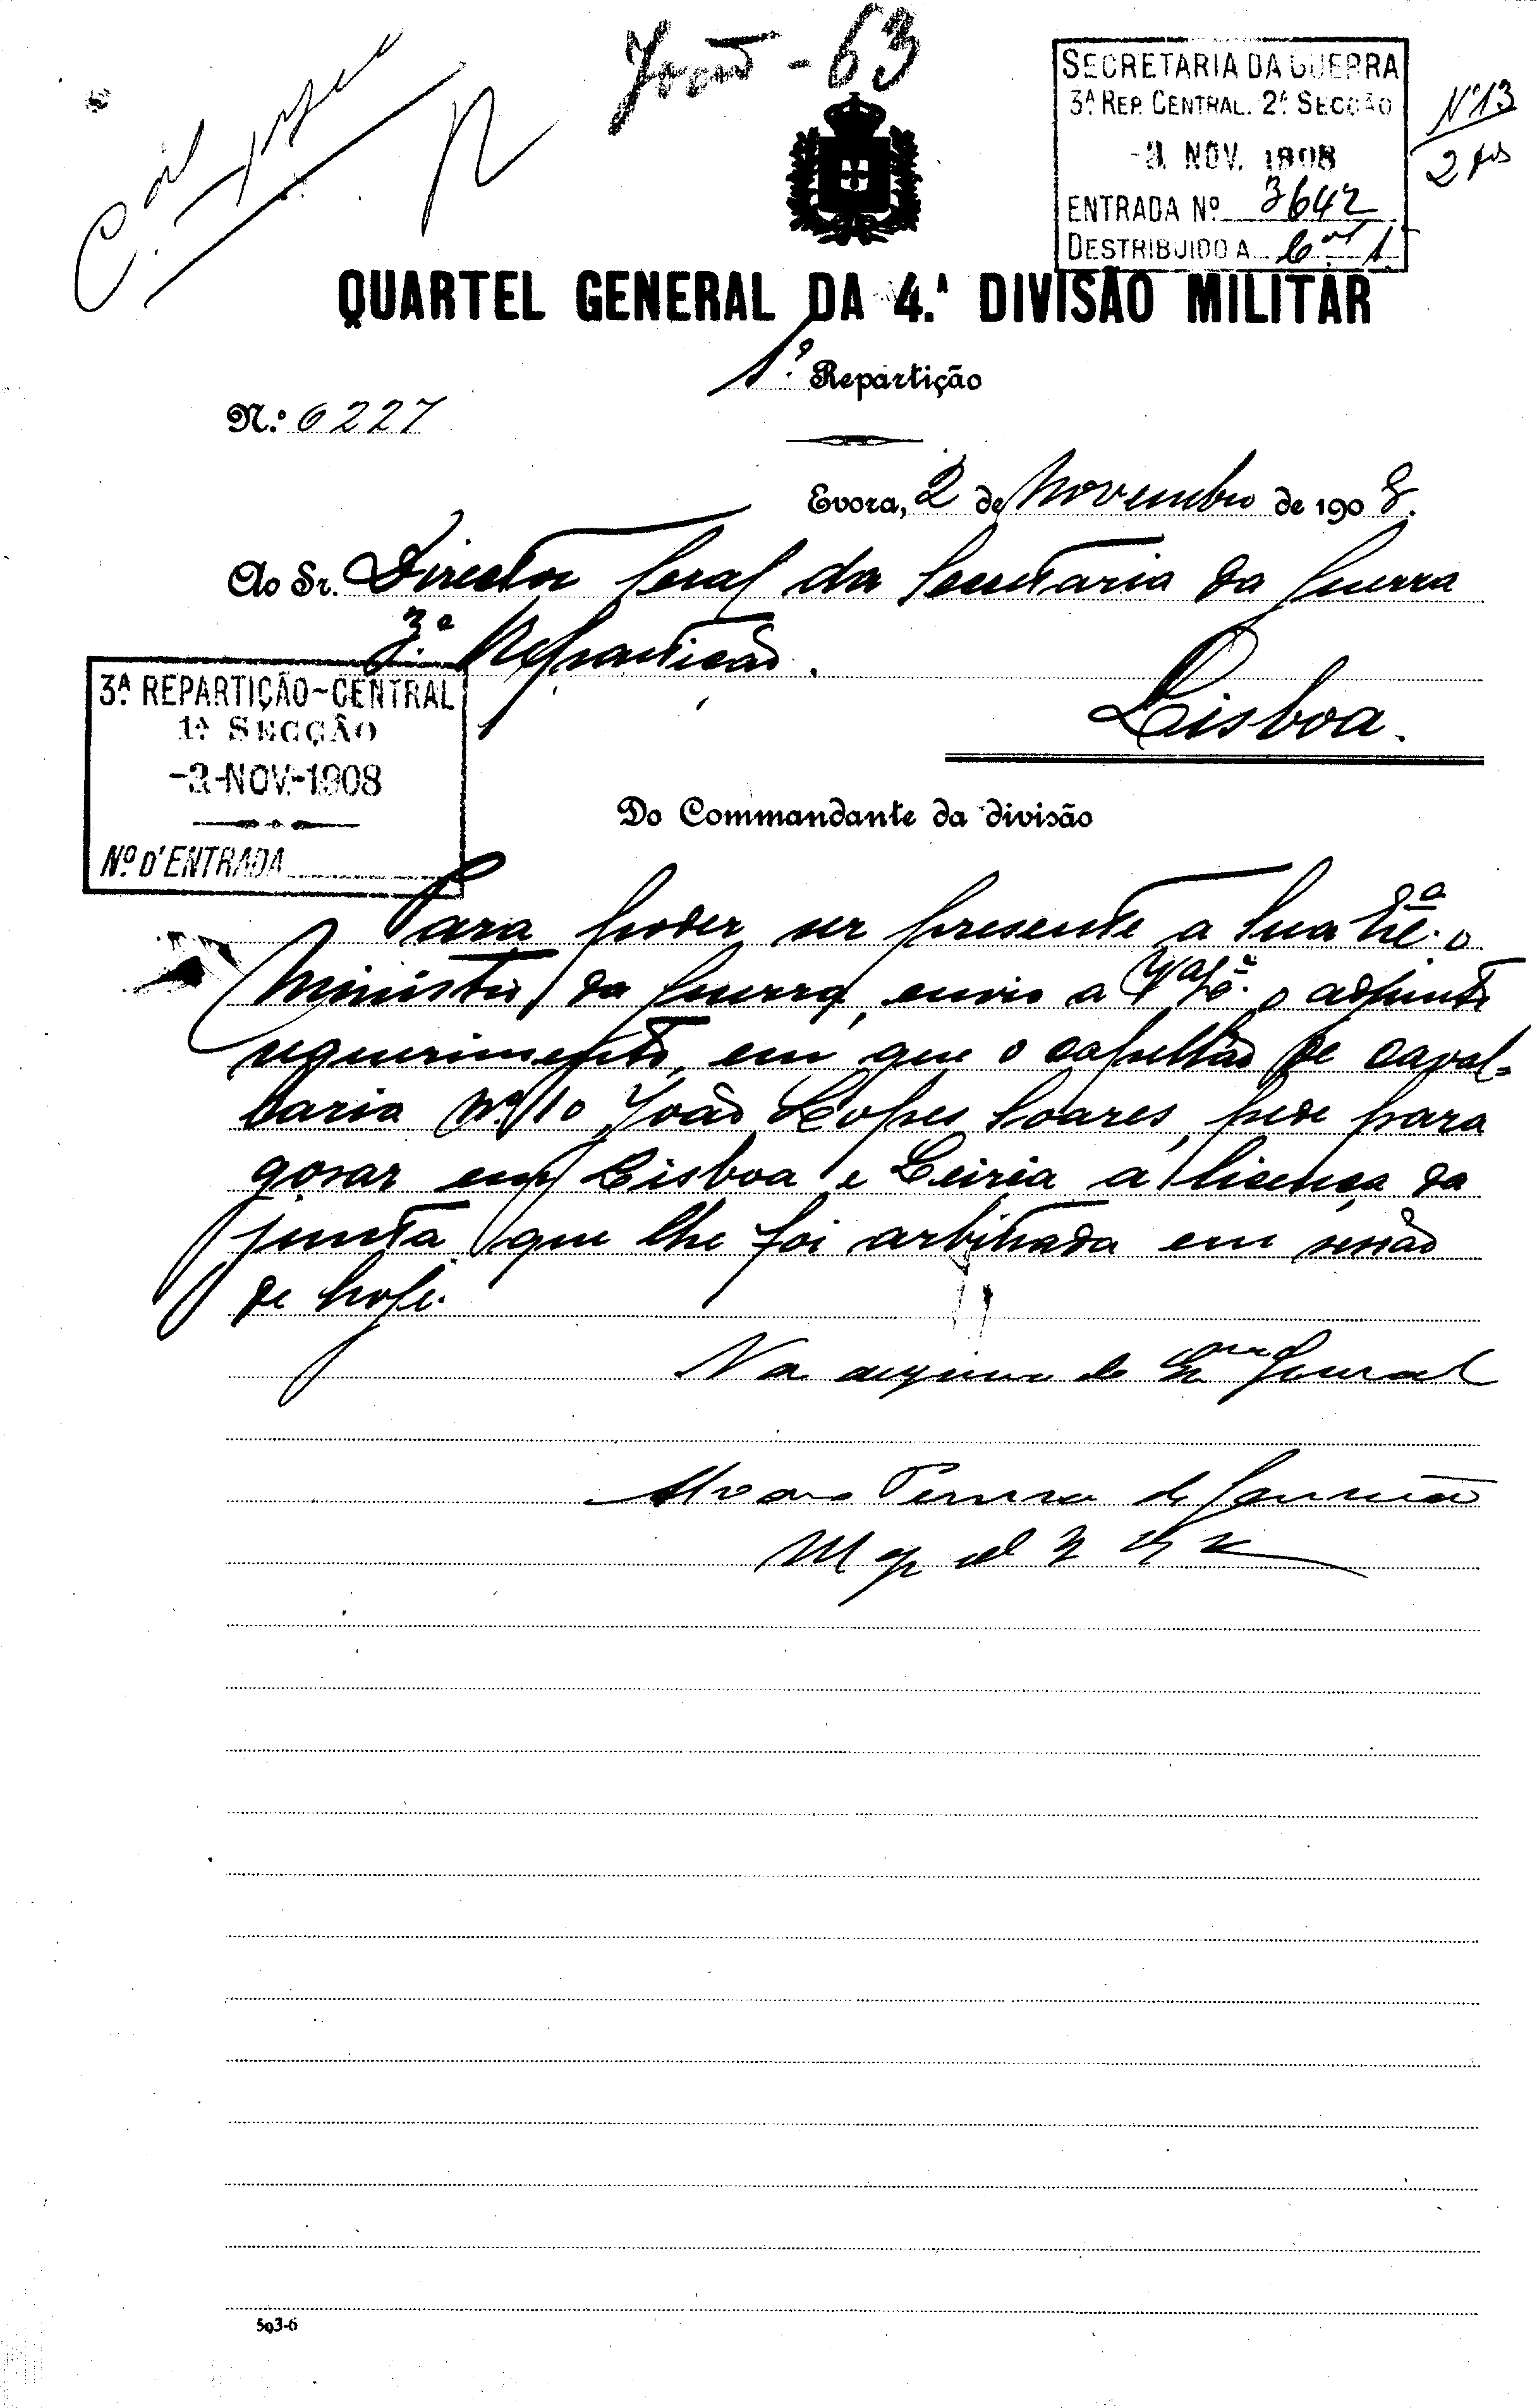 João - 63
SECRETARIA DA GUERRA
3ª REP. CENTRAL. 2ª SECÇÃO
NOV. 1908
ENTRADA Nº 3642
DESTRIBUIDO A
Nº 13
2
QUARTEL GENERAL DA 4.ª DIVISÃO MILITAR
1ª Repartição
N.º 6227
Evora, 2 de Novembro de 1908.
Ao Sr. Director Geral da Secretaria da Guerra
3ª Repartição.
Lisboa.
3ª REPARTIÇÃO-CENTRAL
1ª SECÇÃO
NOV.-1908
Nº D'ENTRADA
Do Commandante da divisão
Para poder ser presente a Sua Exª o
Ministro da Guerra, envio a V. Exª o adjunto
requerimento, em que o capellão de caval-
laria nº 10 João Lopes Soares, pede para
gosar em Lisboa e Leiria a licença da
junta que lhe foi arbitrada em sessão
de hoje.
Na do General
Alvaro de
503-6